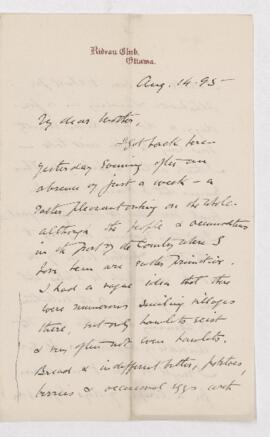 Rideau Club,
Ottawa.
Aug. 14. 95 -
My dear Mother,
I got back here
yesterday evening after an
absence of just a week - a
rather pleasant outing on the whole
although the people & accomodation
in the part of the Country where I
have been are rather primitive.
I had a vague idea that there
were numerous smiling villages
there, but only hamlets exist
& very often not even hamlets.
Bread & indifferent butter, potatoes,
berries & occasional eggs with